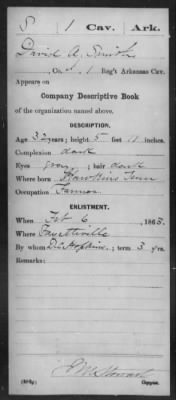 S 1 Cav. Ark.
David A. Smith
, Co. , 1 Reg't Arkansas Cav.
Appears on
Company Descriptive Book
of the organization named above.
DESCRIPTION.
Age 32 years; height 5 feet 11 inches.
Complexion dark
Eyes gray; hair dark
Where born Hawkins Tenn
Occupation Farmer
ENLISTMENT.
When Feb 6, 1863.
Where Fayetteville
By whom D. Hopkins; term 3 y'rs.
Remarks:
Copyist.